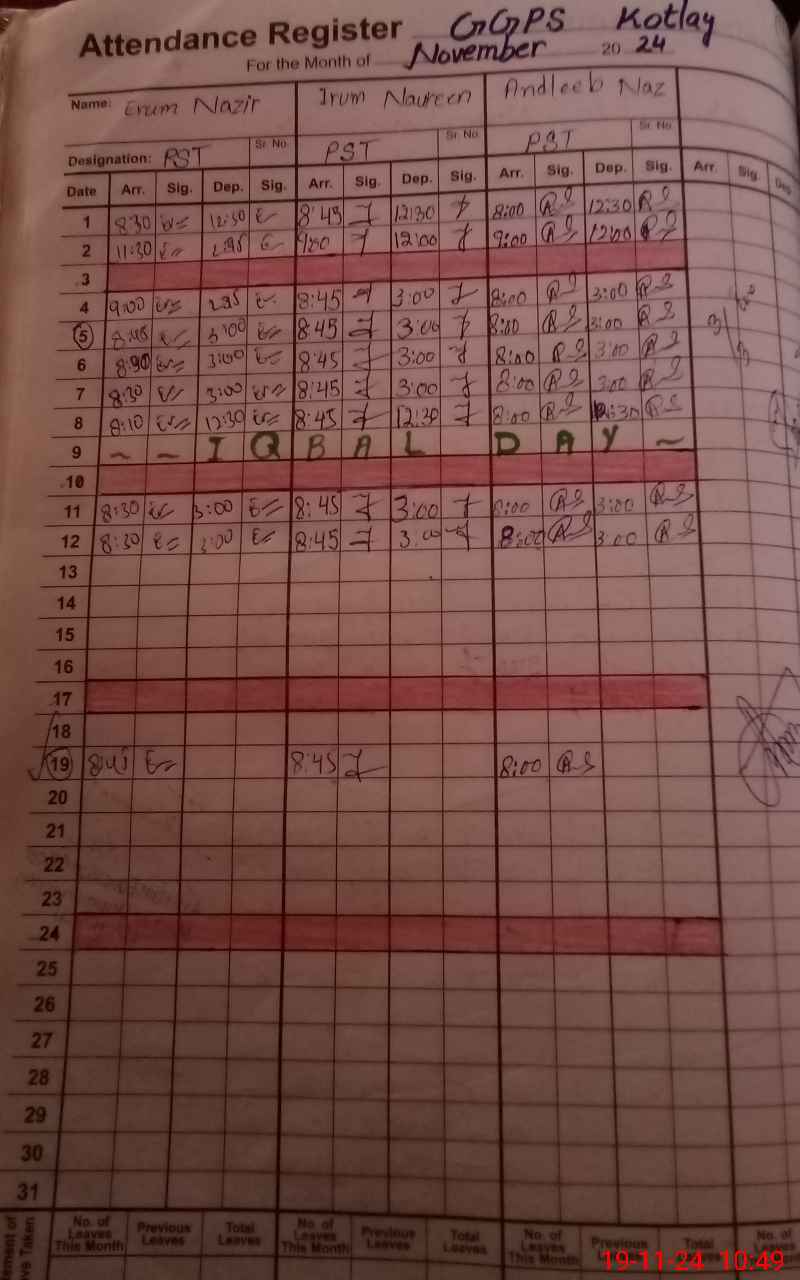 Attendance Register GGPS Kotlay
For the Month of November 20 24
Name: Erum Nazir Irum Naureen Andleeb Naz
Sr. No. Sr. No. Sr. No.
Designation: PST PST PST
Date Arr. Sig. Dep. Sig. Arr. Sig. Dep. Sig. Arr. Sig. Dep. Sig. Arr. Sig. Dep.
1 8:30 12:30 8:45 12:30 8:00 12:30
2 11:30 12:00 9:00 12:00
3
4 9:00 8:45 3:00 8:00 3:00
5 3:00 8:45 3:00 8:00 3:00
6 3:00 8:45 3:00 8:00 3:00
7 8:30 3:00 8:45 3:00 8:00 3:00
8 8:10 12:30 8:45 12:30 8:00 12:30
9 ~ ~ I Q B A L D A Y ~
10
11 8:30 3:00 8:45 3:00 8:00 3:00
12 8:30 3:00 8:45 3:00 8:00 3:00
13
14
15
16
17
18
19 8:45 8:00
20
21
22
23
24
25
26
27
28
29
30
31
No. of Leaves This Month Previous Leaves Total Leaves No. of Leaves This Month Previous Leaves Total Leaves No. of Leaves This Month Previous Leaves Total Leaves No. of Leaves
19-11-24 10:49